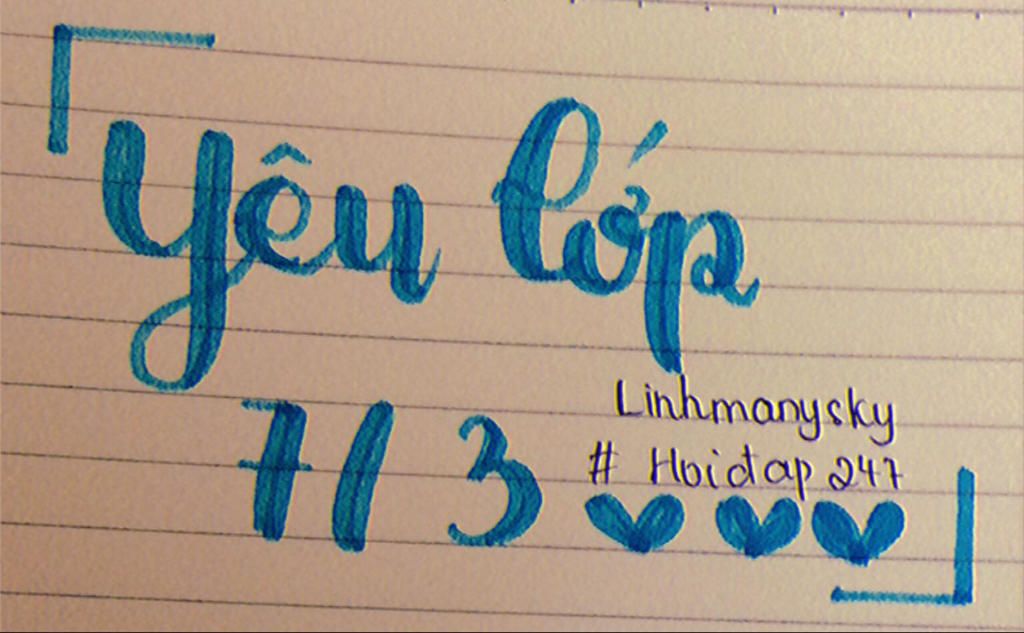 yêu lớp
7/3
Linhmanysky
# Hoidap 247